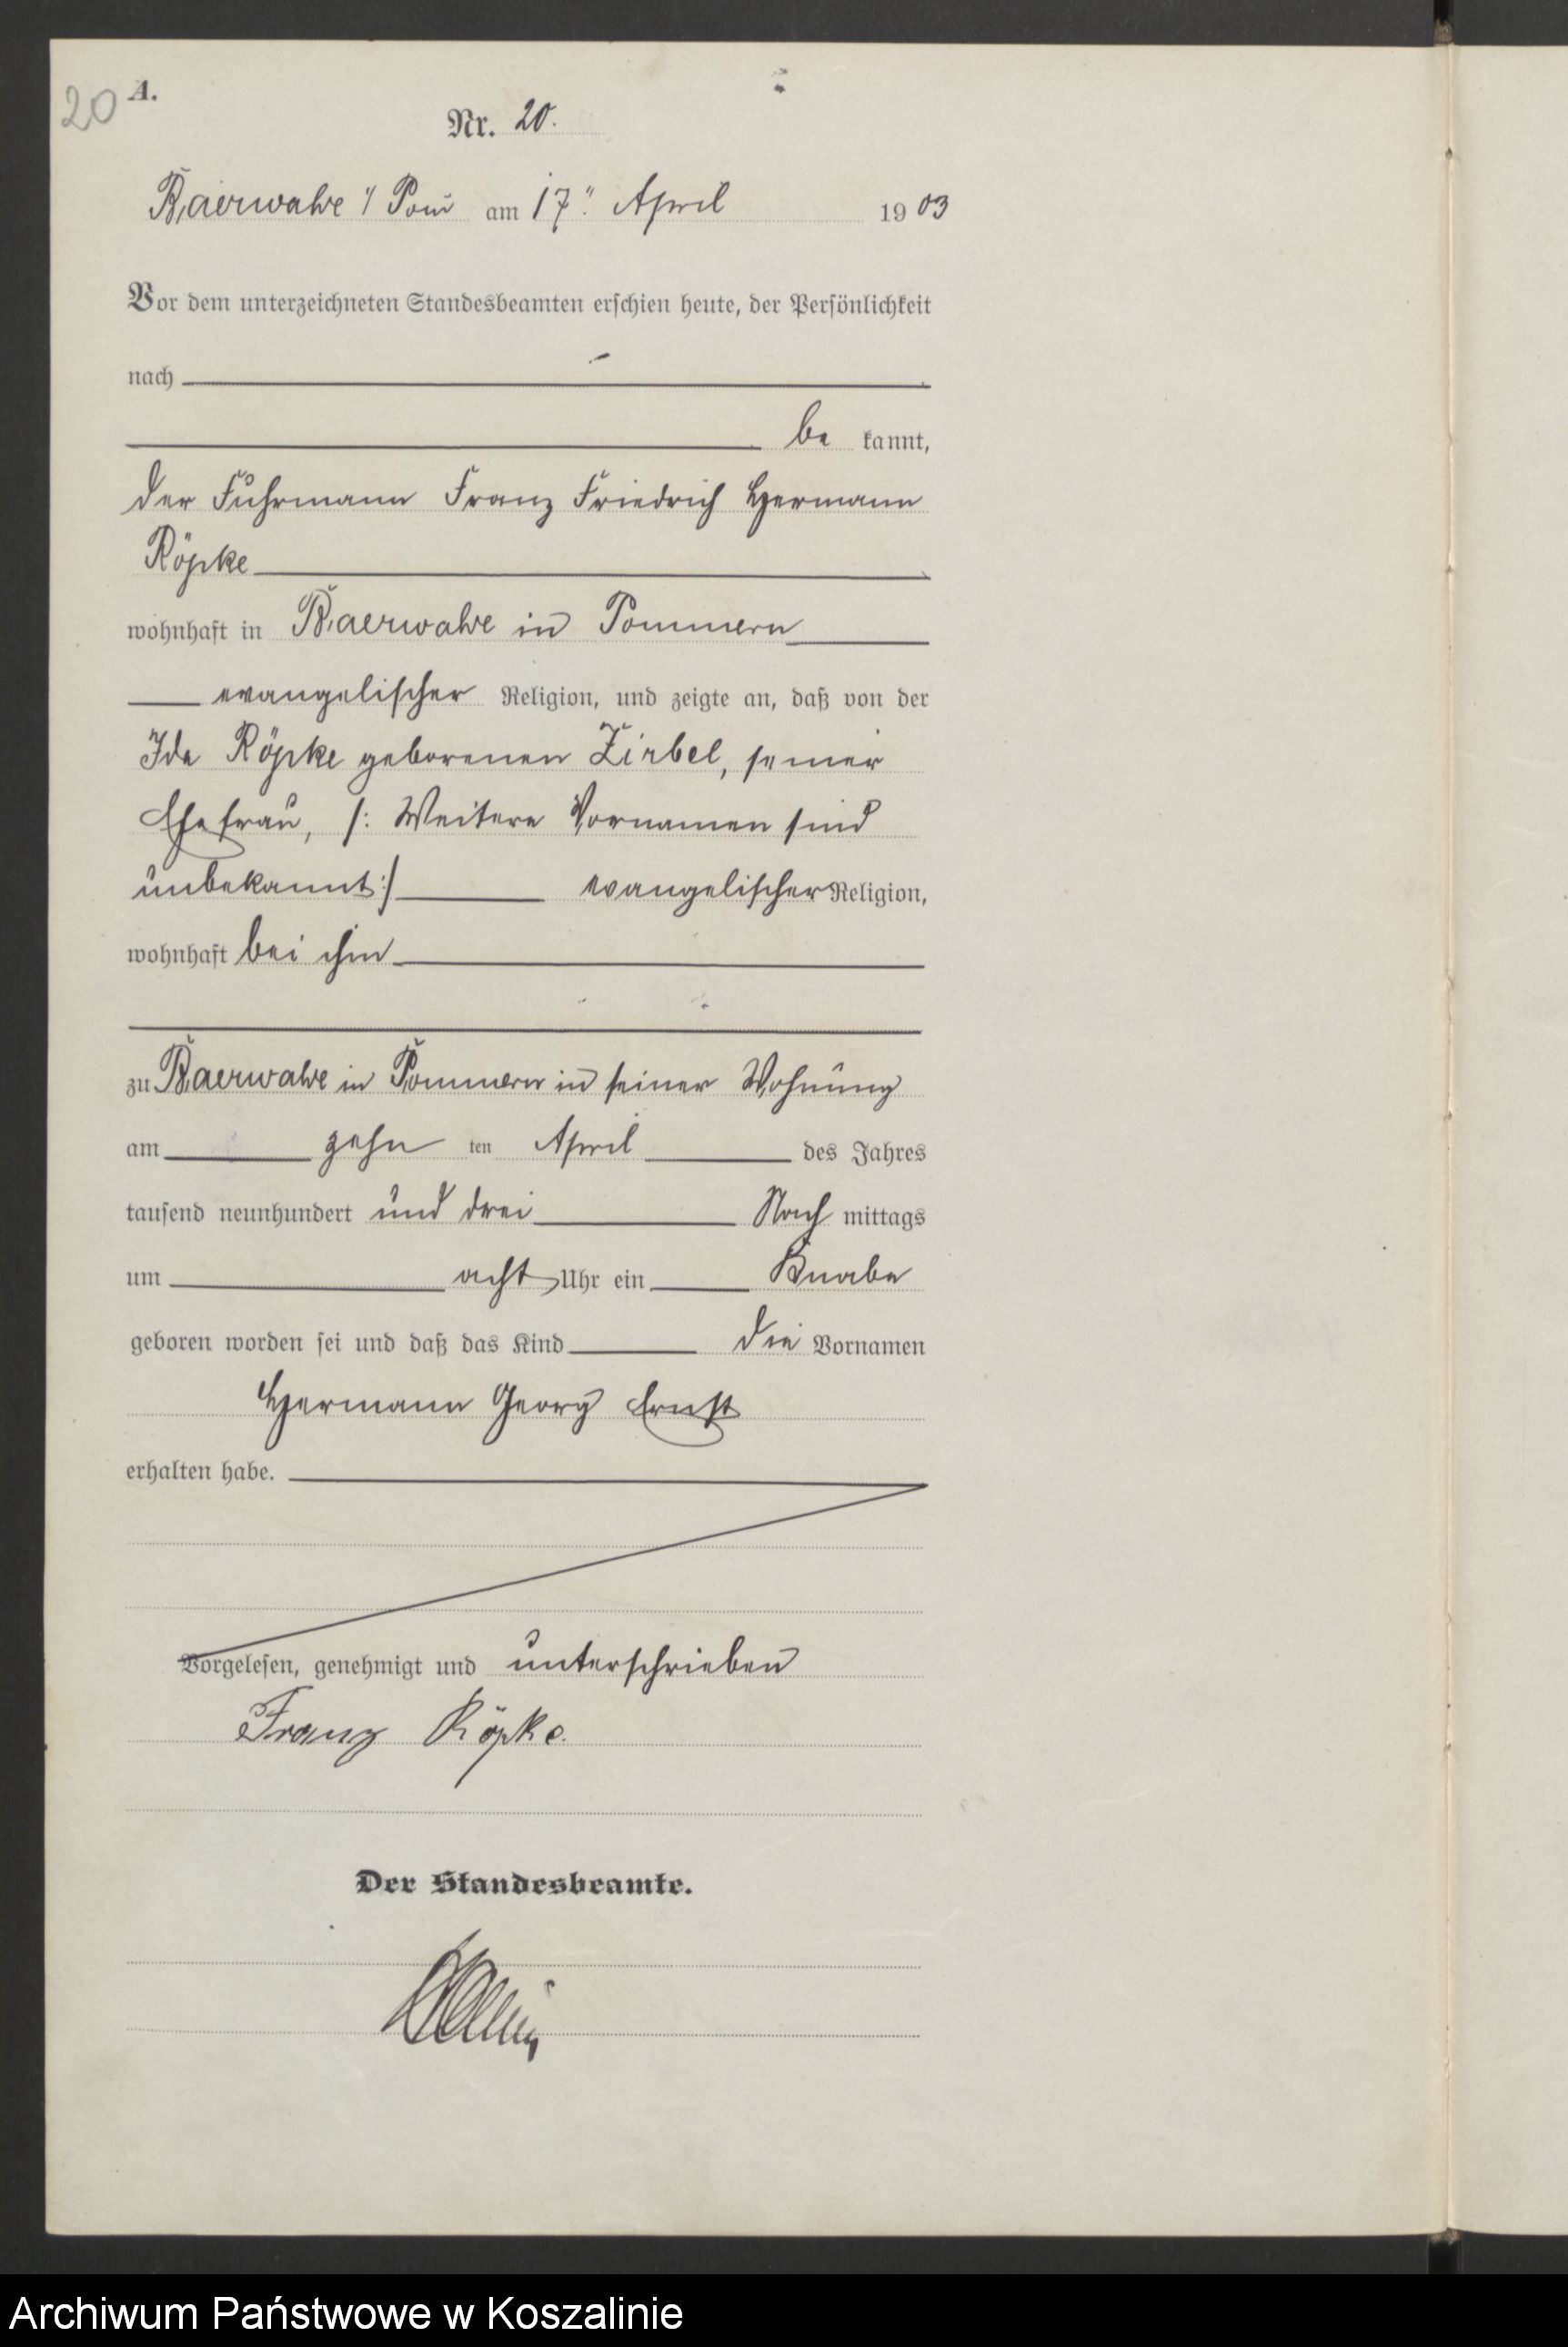 20 A.
Nr. 20.
Baerwalde i/ Pom am 17. April 1903
Vor dem unterzeichneten Standesbeamten erschien heute, der Persönlichkeit
nach
be kannt,
der Fuhrmann Franz Friedrich Hermann
Röpke
wohnhaft in Baerwalde in Pommern
evangelischer Religion, und zeigte an, daß von der
Ida Röpke geborenen Zirbel, seiner
Ehefrau, /: Weitere Vornamen sind
unbekannt :/ evangelischer Religion,
wohnhaft bei ihm
zu Baerwalde in Pommern in seiner Wohnung
am zehn ten April des Jahres
tausend neunhundert und drei Nach mittags
um acht Uhr ein Knabe
geboren worden sei und daß das Kind die Vornamen
Hermann Georg Ernst
erhalten habe.
Vorgelesen, genehmigt und unterschrieben
Franz Röpke.
Der Standesbeamte.
Archiwum Państwowe w Koszalinie